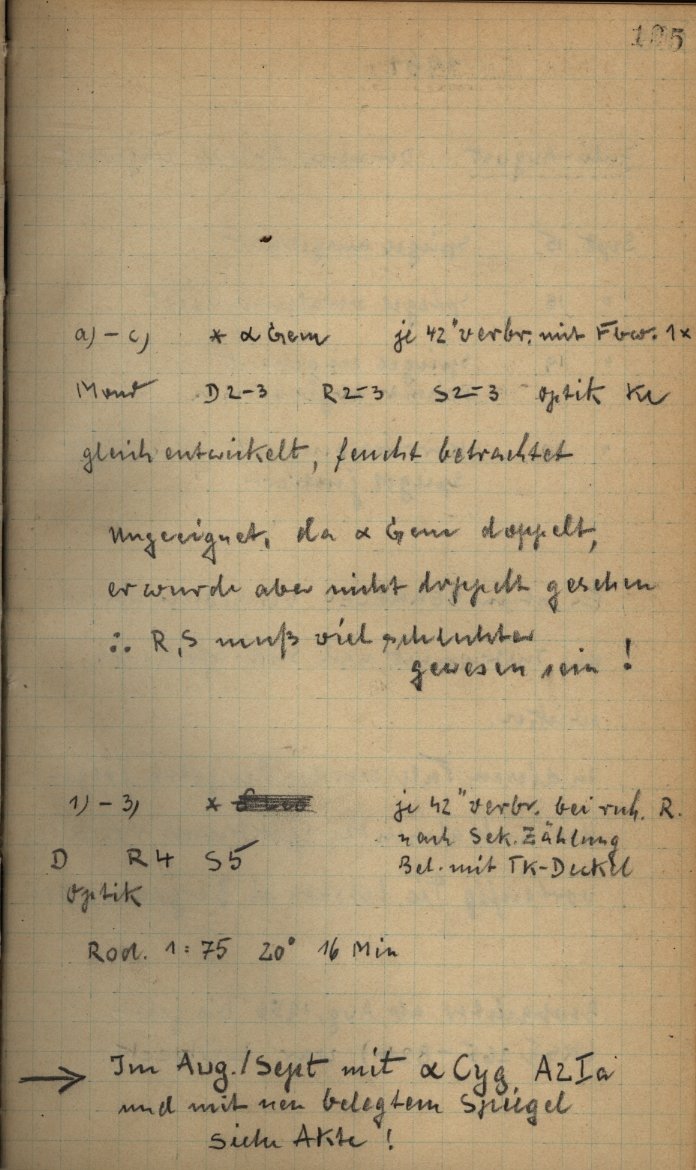 125
a) - c) * α Gem je 42" verbr. mit Fbw. 1x
Mond D2-3 R2-3 S2-3 Optik
gleich entwickelt, feucht betrachtet
Ungeeignet, da α Gem doppelt,
er wurde aber nicht doppelt gesehen
∴ R,S muß viel schlechter
gewesen sein !
1) - 3) * je 42" verbr. bei ruh. R.
nach Sek. Zählung
D R4 S5 Bel. mit TK-Deckel
Optik
Rod. 1:75 20° 16 Min
→ Im Aug./Sept mit α Cyg A2Ia
und mit neu belegtem Spiegel
Siehe Akte !